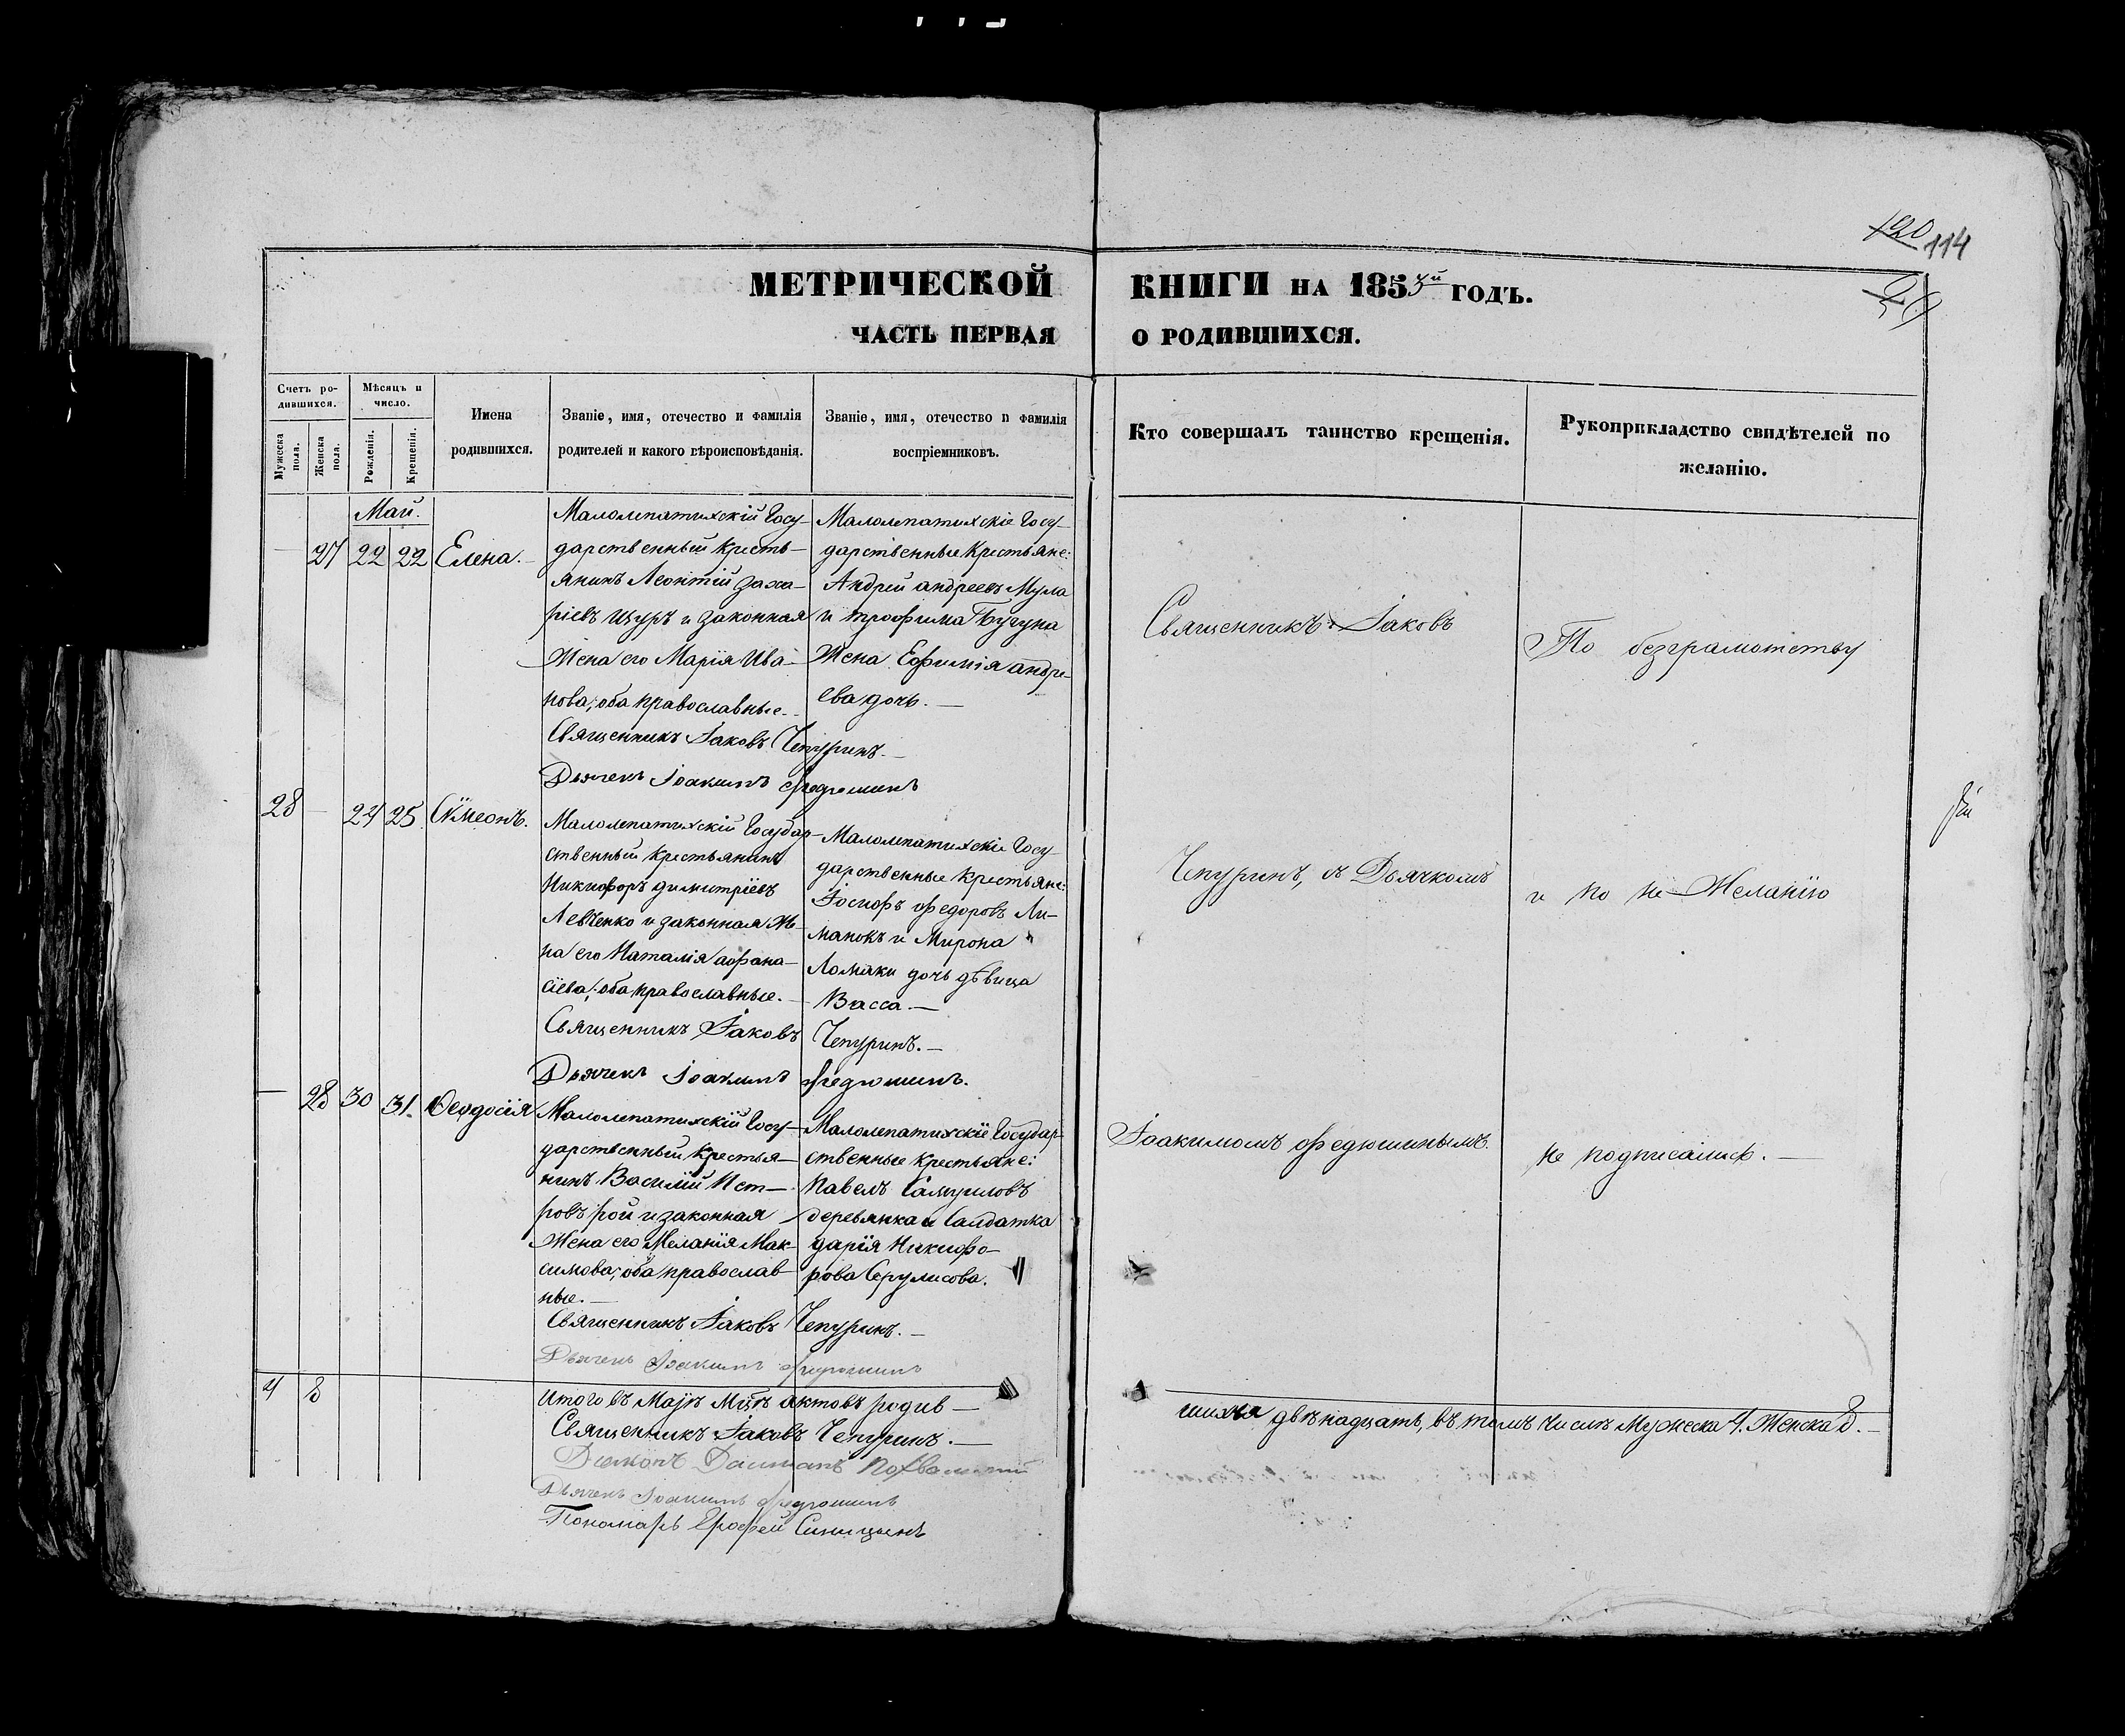 120 114
МЕТРИЧЕСКОЙ КНИГИ НА 1853й ГОДЪ.
ЧАСТЬ ПЕРВАЯ О РОДИВШИХСЯ.
Счетъ ро-
дившихся.
Мужеска
пола.
Женска
пола.
Мѣсяцъ и
число.
Рожденія.
Крещенія.
Имена
родившихся.
Званіе, имя, отечество и фамилія
родителей и какого вѣроисповѣданія.
Званіе, имя, отечество и фамилія
воспріемниковъ.
Кто совершалъ таинство крещенія.
Рукоприкладство свидѣтелей по
желанію.
Май.
— 27 22 22 Елена.
Малолепатихскій Госу-
дарственный кресть-
янинъ Леонтій Заха-
ріевъ Щуръ и законная
Жена его Марія Ива-
нова, оба православные.
Малолепатихскіе Госу-
дарственные Крестьяне:
Андрей андреевъ Мула
и трофима Бугуна
Жена Ефимія андре-
ева дочь.—
Священникъ Іаковъ Чепуринъ.—
Дьячекъ Іоакимъ Федюшинъ
28 — 24 25 Сѵмеонъ.
Малолепатихскій Государ-
ственный крестьянинъ
Никифоръ димитріевъ
Левченко и законная Же-
на его Наталія афана-
сіева, оба православные.—
Малолепатихскіе Госу-
дарственные крестьяне:
Іосифъ федоровъ Ли-
манокъ и Мирона
Ломаки дочь дѣвица
Васса.—
Священникъ Іаковъ Чепуринъ.—
Дьячекъ Іоакимъ Федюшинъ.
— 28 30 31. Феодосія
Малолепатихскій Госу-
дарственный Крестья-
нинъ Василій Пет-
ровъ рой и законная
Жена его Меланія Мак-
симова, оба православ-
ные.—
Малолепатихскіе Государ-
ственные крестьяне:
Павелъ Самуиловъ
деревянка и Салдатка
дарія Никифо-
рова
Священникъ Іаковъ Чепуринъ.—
Дьячекъ Іоакимъ Федюшинъ
Священникъ Іаковъ
Чепуринъ, съ Дьячкомъ
Іоакимомъ Федюшинымъ.
По безграмотству
и по не Желанію
не подписались.—
4 8 Итого въ Маіѣ Мцѣ актовъ родив-
шихся двѣнадцать, въ томъ числѣ Мужеска 4. Женска 8.—
Священникъ Іаковъ Чепуринъ.—
Дьячекъ Іоакимъ Федюшинъ
Пономарь Ерофей Синицынъ